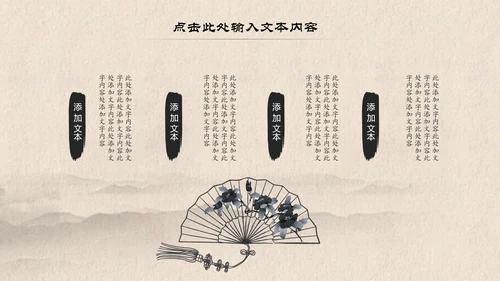 点击此处输入文本内容
添加文本
此处添加文字内容此处添加文
字内容此处添加文字内容此
处添加文字内容此处添加文
字内容此处添加文字内容
添加文本
此处添加文字内容此处添加文
字内容此处添加文字内容此
处添加文字内容此处添加文
字内容此处添加文字内容
添加文本
此处添加文字内容此处添加文
字内容此处添加文字内容此
处添加文字内容此处添加文
字内容此处添加文字内容
添加文本
此处添加文字内容此处添加文
字内容此处添加文字内容此
处添加文字内容此处添加文
字内容此处添加文字内容